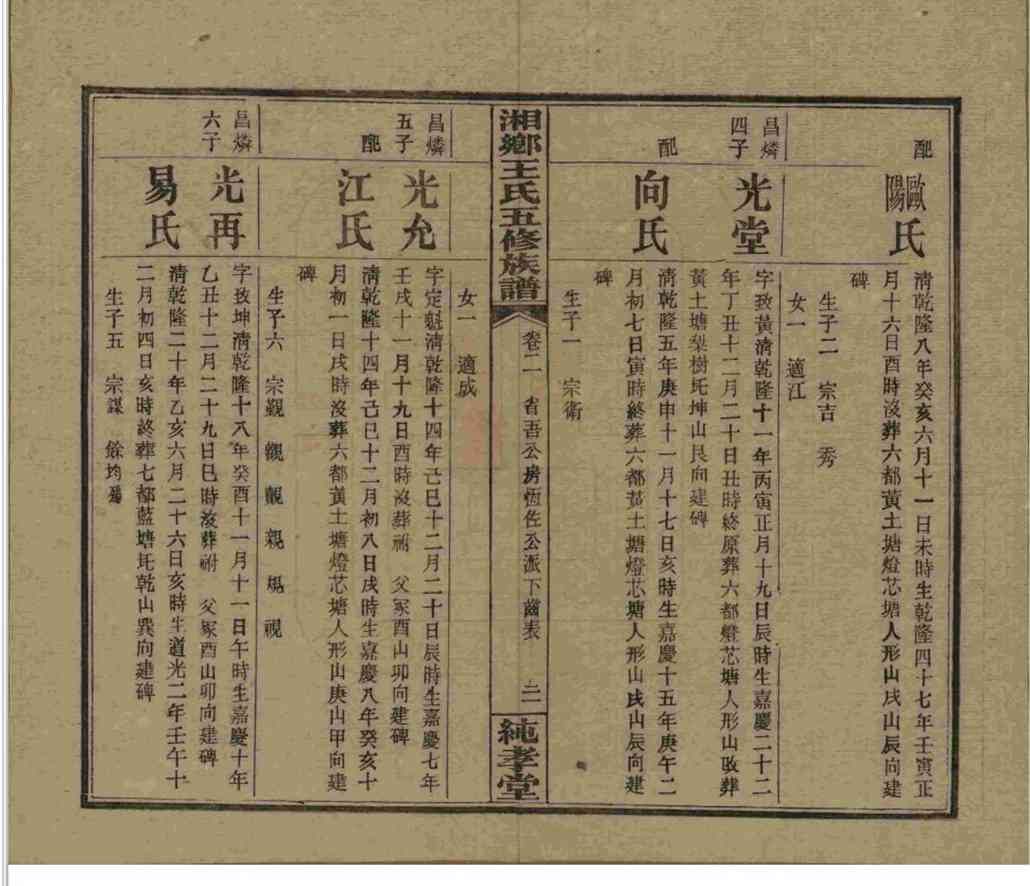 配
歐陽氏
清乾隆八年癸亥六月十一日未時生乾隆四十七年壬寅正
月十六日酉時沒葬六都黃土塘燈芯塘人形山戌山辰向建
碑
生子二 宗吉 秀
女一 適江
昌燐
四子
光堂
字致黃清乾隆十一年丙寅正月十九日辰時生嘉慶二十二
年丁丑十二月二十日丑時終原葬六都燈芯塘人形山改葬
黃土塘梨樹坵坤山艮向建碑
配
向氏
清乾隆五年庚申十一月十七日亥時生嘉慶十五年庚午二
月初七日寅時終葬六都黃土塘燈芯塘人形山戌山辰向建
碑
生子一 宗衛
湘鄉王氏五修族譜
卷二 省吾公房恆佐公派下齒表 二
純孝堂
女一 適成
昌燐
五子
光允
字定魁清乾隆十四年己巳十二月二十日辰時生嘉慶七年
壬戌十一月十九日酉時沒葬祔 父冢酉山卯向建碑
配
江氏
清乾隆十四年己巳十二月初八日戌時生嘉慶八年癸亥十
月初一日戌時沒葬六都黃土塘燈芯塘人形山庚山甲向建
碑
生子六 宗觀 覲 親 規 視
昌燐
六子
光再
字致坤清乾隆十八年癸酉十一月十一日午時生嘉慶十年
乙丑十二月二十九日巳時沒葬祔 父冢酉山卯向建碑
易氏
清乾隆二十年乙亥六月二十六日亥時生道光二年壬午十
二月初四日亥時終葬七都藍塘坵乾山巽向建碑
生子五 宗謀 餘均殤